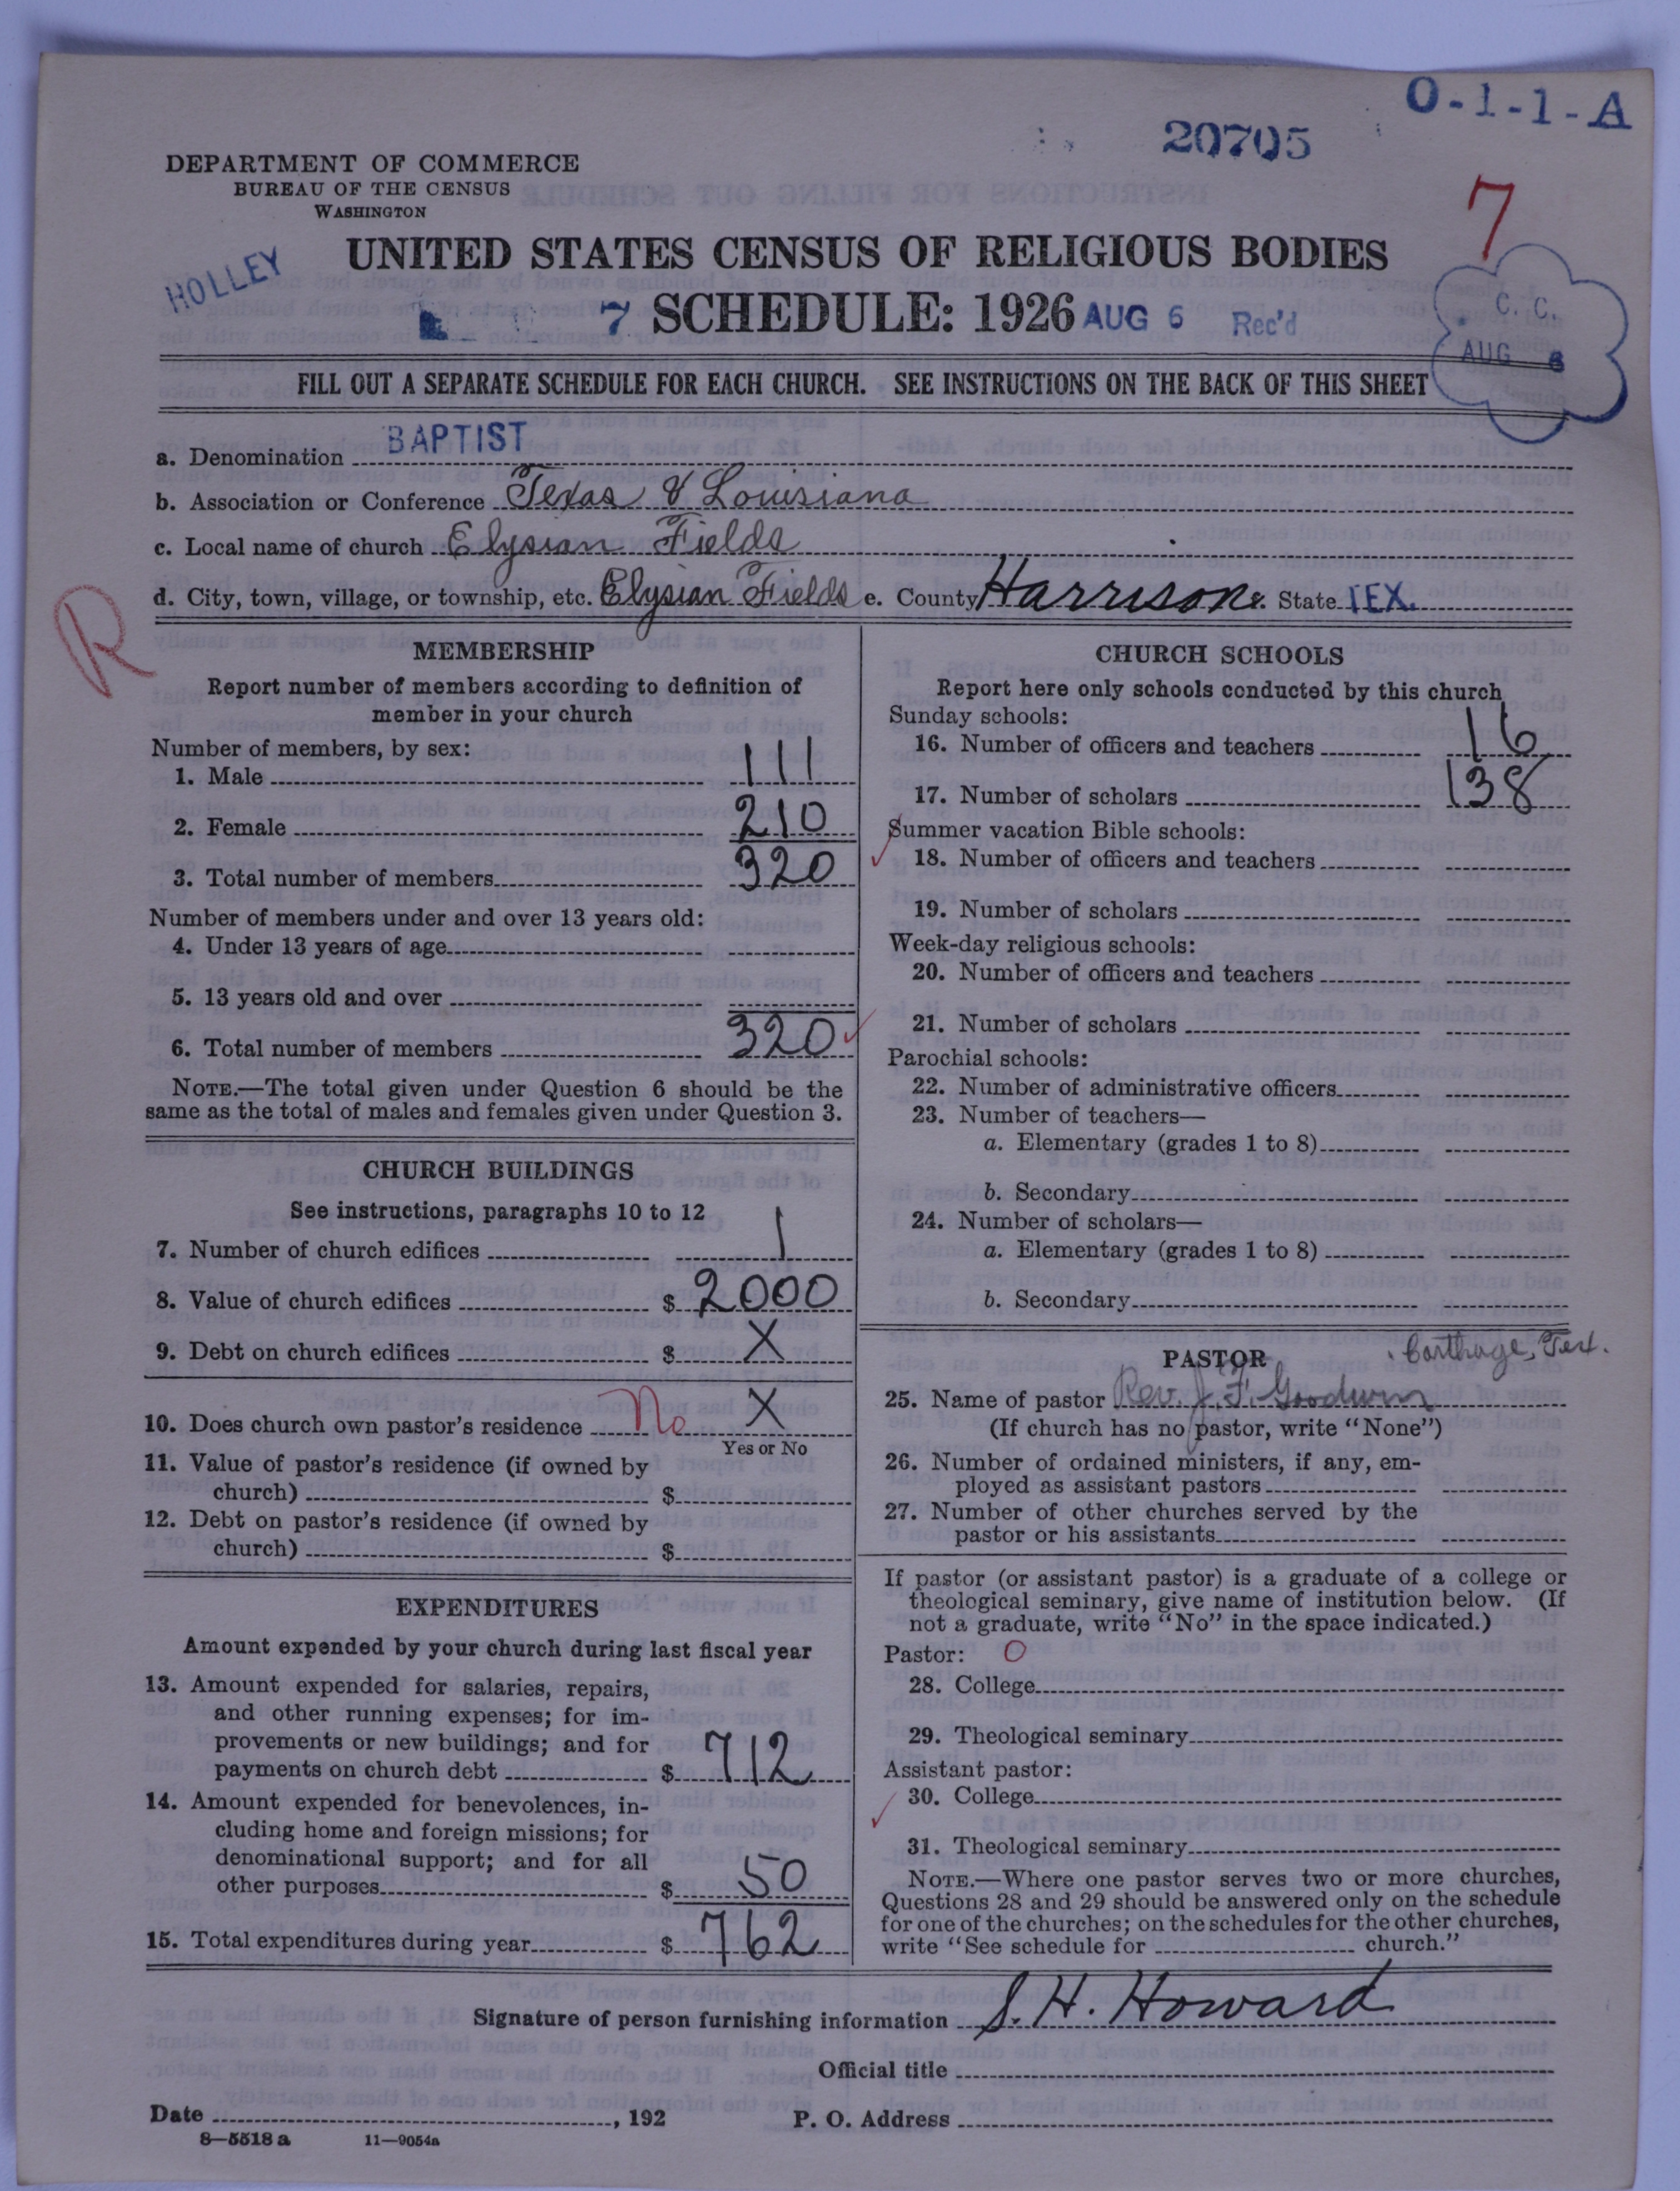 O-1-1-A
20705
DEPARTMENT OF COMMERCE
BUREAU OF THE CENSUS
WASHINGTON
7
UNITED STATES CENSUS OF RELIGIOUS BODIES
HOLLEY
7 SCHEDULE: 1926 AUG 6 Rec'd
C. C.
AUG 6
FILL OUT A SEPARATE SCHEDULE FOR EACH CHURCH. SEE INSTRUCTIONS ON THE BACK OF THIS SHEET
a. Denomination BAPTIST
b. Association or Conference Texas & Louisiana
c. Local name of church Elysian Fields
d. City, town, village, or township, etc. Elysian Fields e. County Harrison f. State TEX.
R
MEMBERSHIP
Report number of members according to definition of
member in your church
Number of members, by sex:
1. Male 111
2. Female 210
3. Total number of members 320
Number of members under and over 13 years old:
4. Under 13 years of age
5. 13 years old and over
6. Total number of members 320
NOTE.—The total given under Question 6 should be the
same as the total of males and females given under Question 3.
CHURCH BUILDINGS
See instructions, paragraphs 10 to 12
7. Number of church edifices 1
8. Value of church edifices $ 2000
9. Debt on church edifices $ X
10. Does church own pastor's residence No X
Yes or No
11. Value of pastor's residence (if owned by
church) $
12. Debt on pastor's residence (if owned by
church) $
EXPENDITURES
Amount expended by your church during last fiscal year
13. Amount expended for salaries, repairs,
and other running expenses; for im-
provements or new buildings; and for
payments on church debt $ 712
14. Amount expended for benevolences, in-
cluding home and foreign missions; for
denominational support; and for all
other purposes $ 50
15. Total expenditures during year $ 762
CHURCH SCHOOLS
Report here only schools conducted by this church
Sunday schools:
16. Number of officers and teachers 16
17. Number of scholars 138
Summer vacation Bible schools:
18. Number of officers and teachers
19. Number of scholars
Week-day religious schools:
20. Number of officers and teachers
21. Number of scholars
Parochial schools:
22. Number of administrative officers
23. Number of teachers—
a. Elementary (grades 1 to 8)
b. Secondary
24. Number of scholars—
a. Elementary (grades 1 to 8)
b. Secondary
PASTOR Carthage, Tex.
25. Name of pastor Rev. J. F. Goodwin
(If church has no pastor, write "None")
26. Number of ordained ministers, if any, em-
ployed as assistant pastors
27. Number of other churches served by the
pastor or his assistants
If pastor (or assistant pastor) is a graduate of a college or
theological seminary, give name of institution below. (If
not a graduate, write "No" in the space indicated.)
Pastor: O
28. College
29. Theological seminary
Assistant pastor:
30. College
31. Theological seminary
NOTE.—Where one pastor serves two or more churches,
Questions 28 and 29 should be answered only on the schedule
for one of the churches; on the schedules for the other churches,
write "See schedule for church."
Signature of person furnishing information S. H. Howard
Official title
Date , 192 P. O. Address
8—5518 a 11—9054a